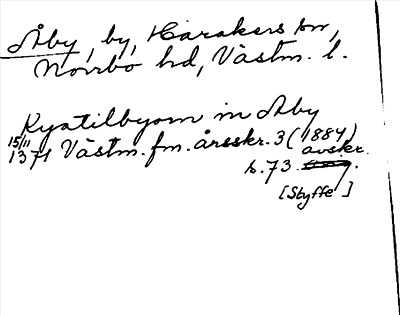 Åby, by, Harakers sn,
Norrbo hd, Västm. l.
Kyatilbyom in Aby
15/11 1371 Västm. fm. årsskr. 3 (1884)
s. 73. avskr.
[Styffe]